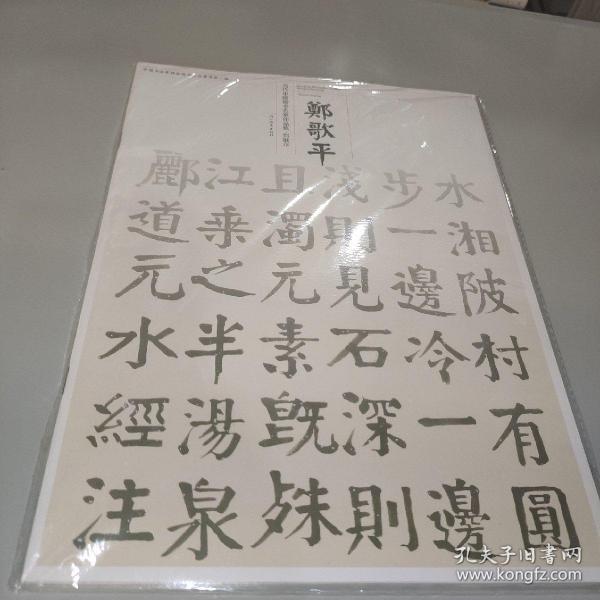 鄭歌平
水湘陂村有圓
步一邊冷一邊
淺則見石深則
且濁元素既殊
江乘之半湯泉
酈道元水經注
孔夫子旧书网
www.kongfz.com